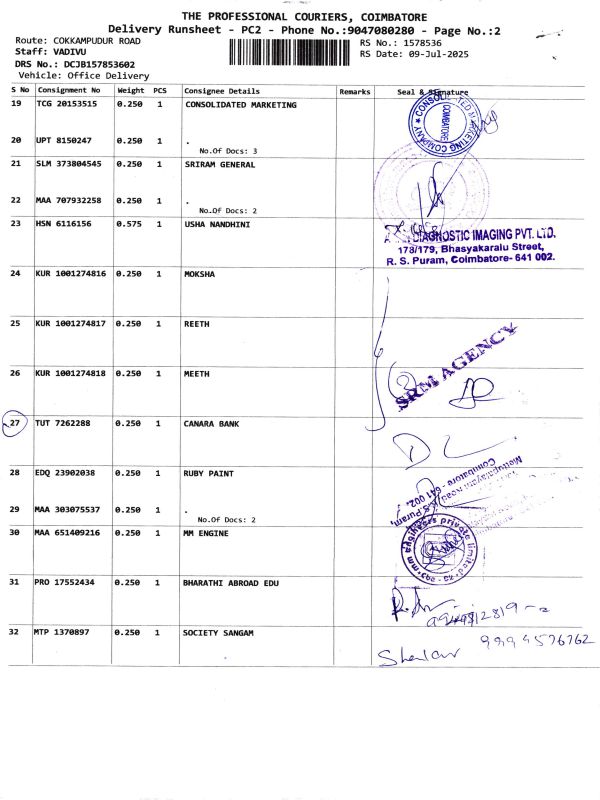 THE PROFESSIONAL COURIERS, COIMBATORE
Delivery Runsheet - PC2 - Phone No.:9047080280 - Page No.:2
Route: COKKAMPUDUR ROAD
RS No.: 1578536
Staff: VADIVU
RS Date: 09-Jul-2025
DRS No.: DCJB157853602
Vehicle: Office Delivery
S No Consignment No Weight PCS Consignee Details Remarks Seal & Signature
19 TCG 20153515 0.250 1 CONSOLIDATED MARKETING
CONSOLIDATED MARKETING COMPANY
COIMBATORE
20 UPT 8150247 0.250 1 .
No.Of Docs: 3
21 SLM 373804545 0.250 1 SRIRAM GENERAL
22 MAA 707932258 0.250 1 .
No.Of Docs: 2
23 HSN 6116156 0.575 1 USHA NANDHINI
DIAGNOSTIC IMAGING PVT. LTD.
178/179, Bhasyakaralu Street,
R. S. Puram, Coimbatore- 641 002.
24 KUR 1001274816 0.250 1 MOKSHA
25 KUR 1001274817 0.250 1 REETH
26 KUR 1001274818 0.250 1 MEETH
SRM AGENCY
27 TUT 7262288 0.250 1 CANARA BANK
28 EDQ 23902038 0.250 1 RUBY PAINT
Mettupalayam Road
R.S Puram,
Coimbatore - 641 002.
29 MAA 303075537 0.250 1 .
No.Of Docs: 2
30 MAA 651409216 0.250 1 MM ENGINE
mm engineers private limited
31 PRO 17552434 0.250 1 BHARATHI ABROAD EDU
32 MTP 1370897 0.250 1 SOCIETY SANGAM
9994576762